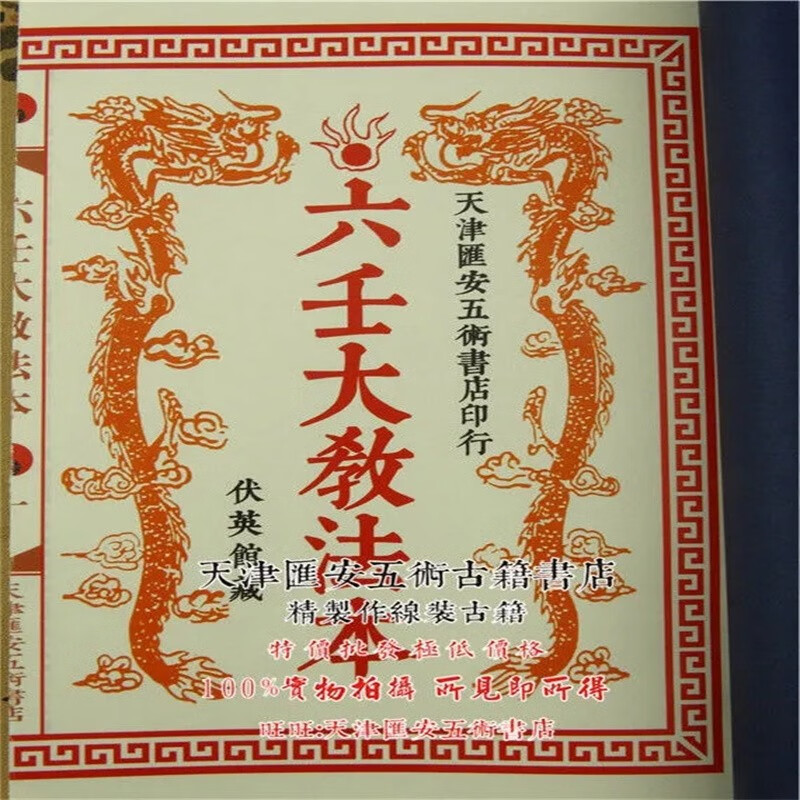 天津匯安五術書店印行
六壬大教法本
伏英館藏
六壬大教法本
一
天津匯安五術書店
天津匯安五術古籍書店
精製作線裝古籍
特價批發極低價格
100%實物拍攝 所見即所得
旺旺:天津匯安五術書店